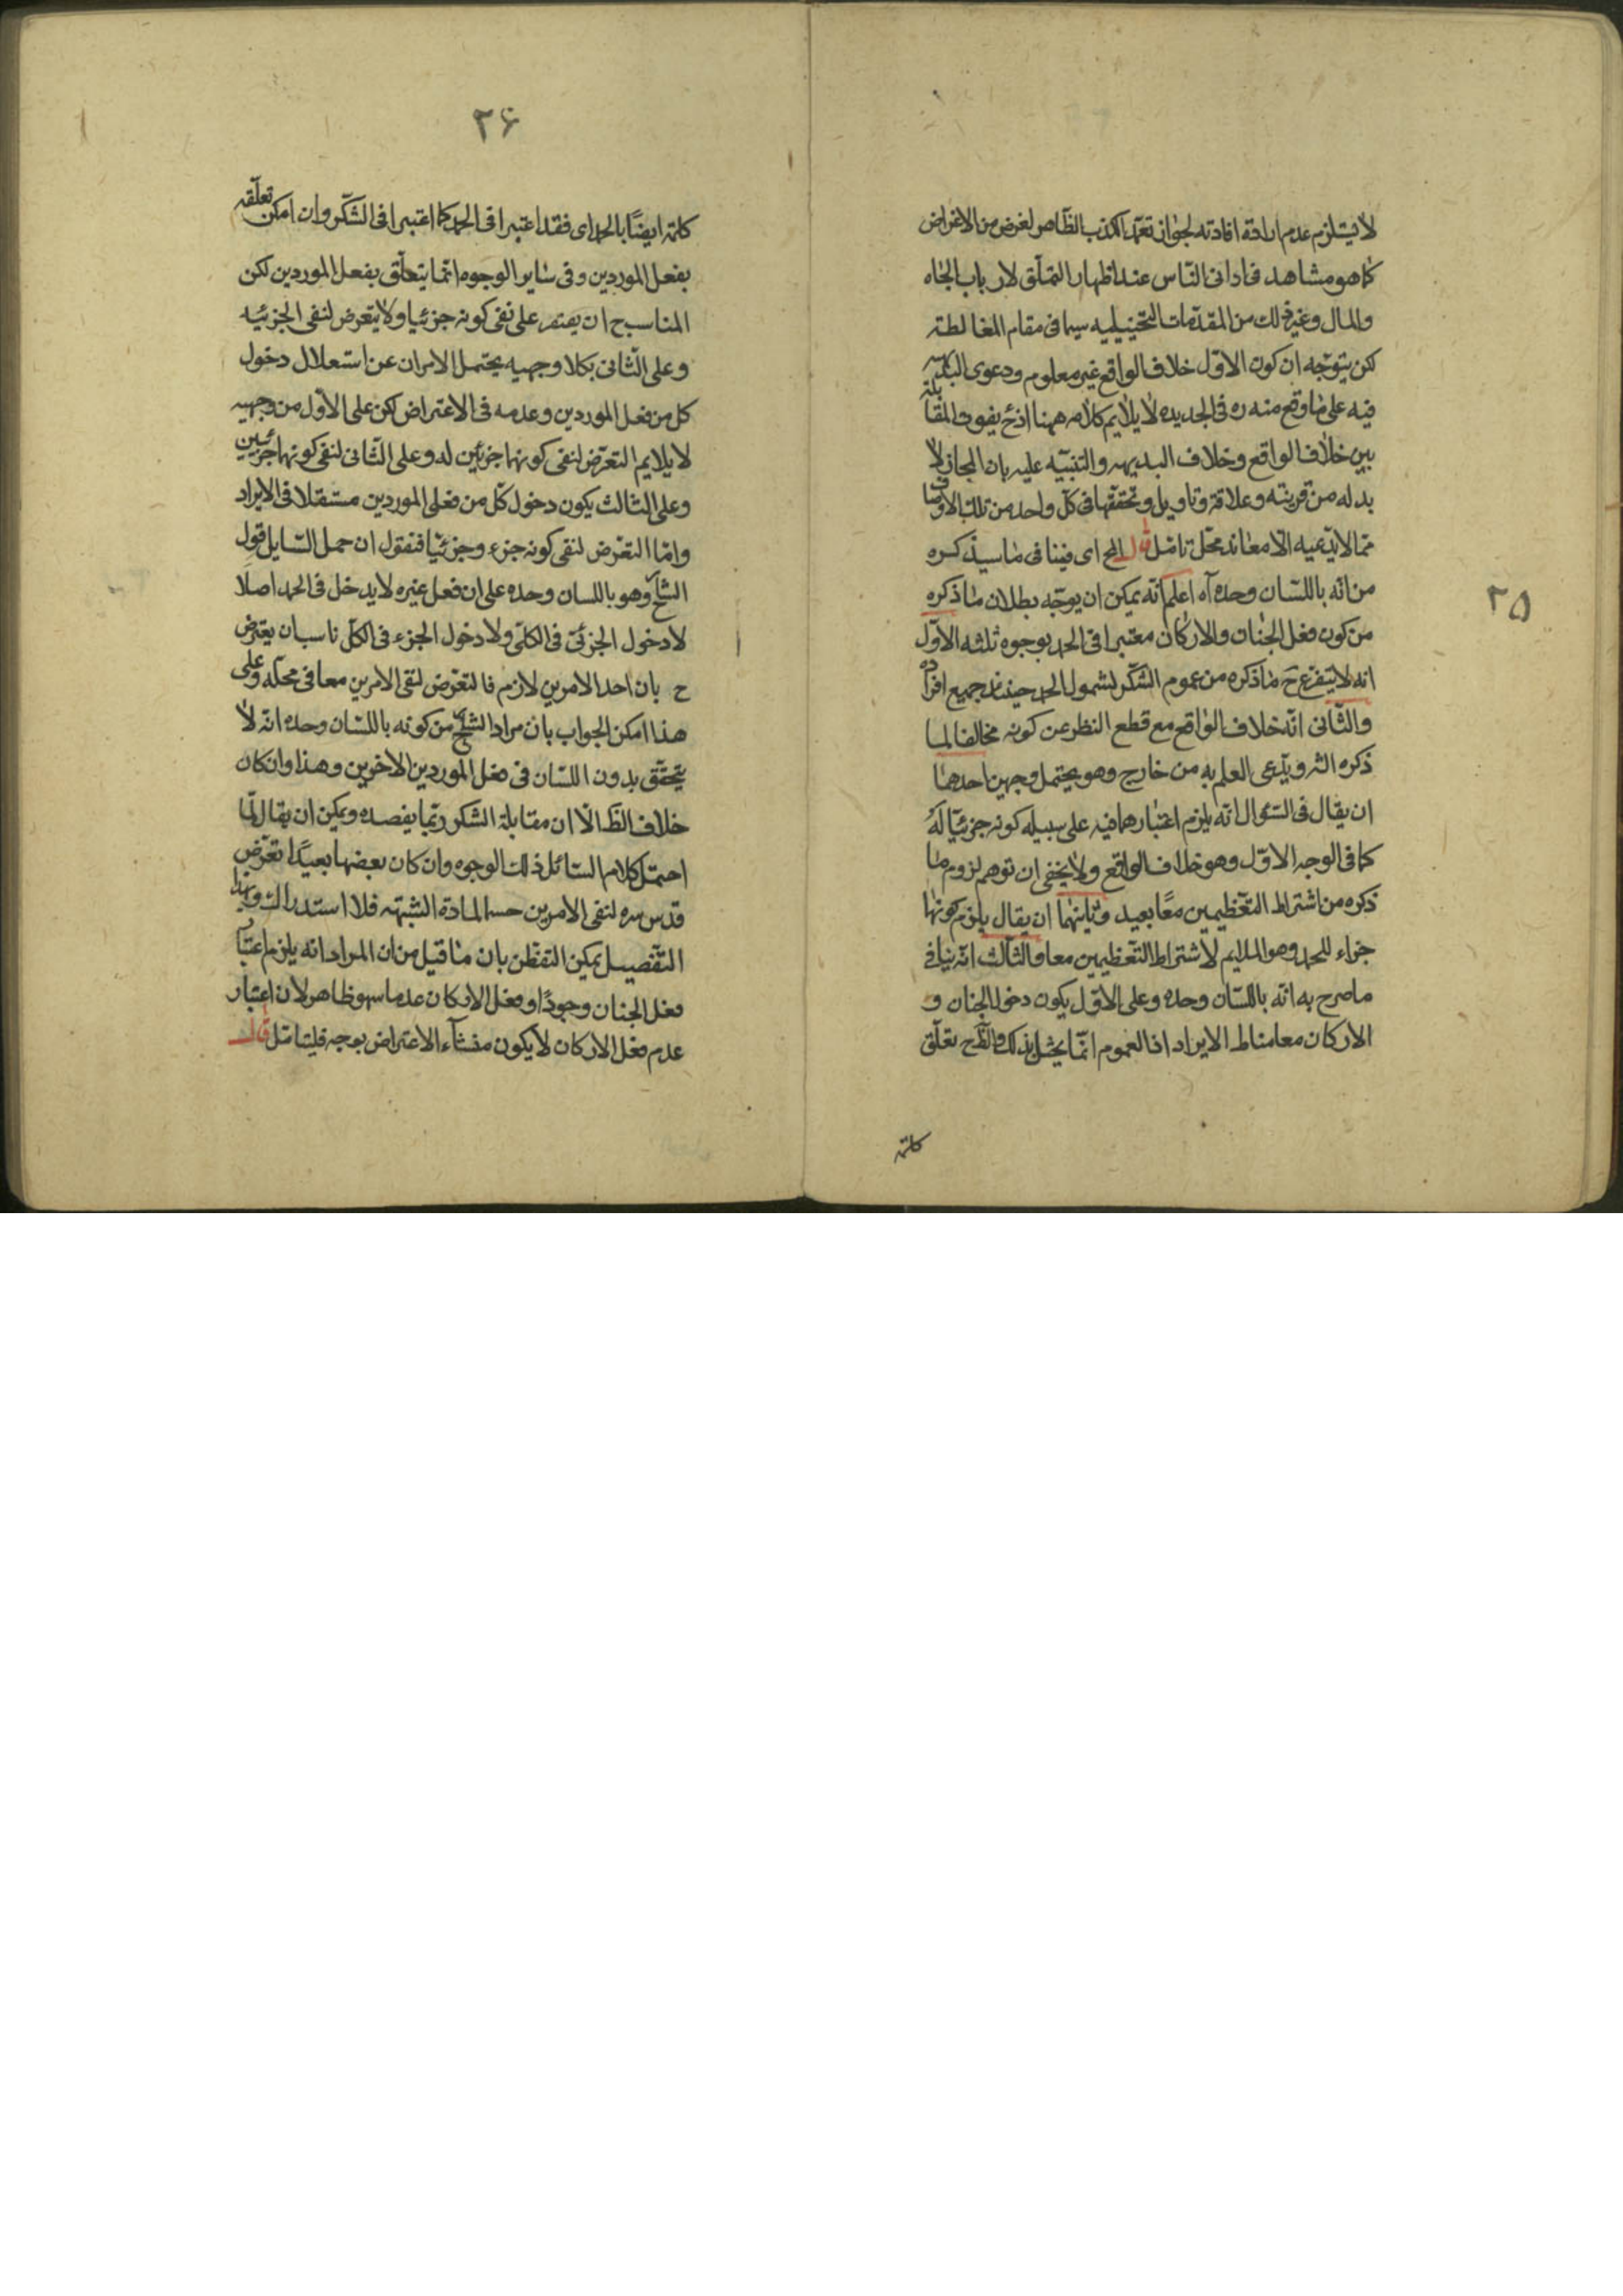 ٢٥
لا يستلزم عدم ارادة افادته لجواز تعمد الكذب الظاهر لغرض من الاغراض
كما هو مشاهد فى ادانى الناس عند اظهار التملق لارباب الجاه
والمال وغير ذلك من المقدمات التخييلية سيما فى مقام المغالطة
لكن يتوجه ان كون الاول خلاف الواقع غير معلوم ودعوى البداهة
فيه على ما وقع منه ره فى الجديده لا يلايم كلامه ههنا اذ ح يفوت المقابلة
بين خلاف الواقع وخلاف البديهه والتنبيه عليه بان المجاز لا
بد له من قرينة وعلاقة وتاويل وتحققها فى كل واحد من تلك الاوصاف
مما لا يدعيه الا معاند محل تامل قال الخ اى فينا فى ما سيذكره
من انه باللسان وحده آه اعلم انه يمكن ان يوجه بطلان ما ذكره
من كون فعل الجنان والاركان معتبرا فى الحمد بوجوه ثلثه الاول
انه لا يتفرع ح ما ذكره من عموم الشكر لشمول الحمد حينئذ جميع افراده
والثانى انه خلاف الواقع مع قطع النظر عن كونه مخالفا لما
ذكره الش ويدعى العلم به من خارج وهو يحتمل وجهين احدهما
ان يقال فى السئوال انه يلزم اعتبارهما فيه على سبيل كونه جزئيا له
كما فى الوجه الاول وهو خلاف الواقع ولا يخفى ان توهم لزوم ما
ذكره من اشتراط التعظيمين معًا بعيد وثانيهما ان يقال يلزم كونها
جزاء للحمد وهو الملايم لاشتراط التعظيمين معا والثالث انه ينافى
ما صرح به انه باللسان وحده وعلى الاول يكون دخول الجنان و
الاركان معا مناط الايراد اذ العموم انما يشمل بذلك والظ ح تعلق
كلمة
٢۶
كلمة ايضًا بالحمد اى فقد اعتبرا فى الحمد كما اعتبرا فى الشكر وان امكن تعلقه
بفعل الموردين وفى ساير الوجوه انما يتعلق بفعل الموردين لكن
المناسب ح ان يقتصر على نفى كونه جزئيا ولا يتعرض لنفى الجزئيه
وعلى الثانى بكلا وجهيه يحتمل الامران عن استعلال دخول
كل من فعل الموردين وعدمه فى الاعتراض لكن على الاول من وجهيه
لا يلايم التعرض لنفى كونهما جزئين له وعلى الثانى لنفى كونهما جزئيين
وعلى الثالث يكون دخول كل من فعلى الموردين مستقلا فى الايراد
واما التعرض لنفى كونه جزء وجزئيا فنقول ان حمل السايل قول
الشارح وهو باللسان وحده على ان فعل غيره لا يدخل فى الحمد اصلًا
لا دخول الجزئى فى الكلى ولا دخول الجزء فى الكل ناسب ان يعترض
ح بان احد الامرين لازم فالتعرض لنفى الامرين معا فى محله وعلى
هذا امكن الجواب بان مراد الشارح من كونه باللسان وحده انه لا
يتحقق بدون اللسان فى فعل الموردين الاخرين وهذا وان كان
خلاف الظ الا ان مقابلة الشكر ربما يفصده ويمكن ان يقال لما
احتمل كلام السائل ذلك الوجوه وان كان بعضها بعيدًا تعرض
قدس سره لنفى الامرين حسما لمادة الشبهة فلا استدراك وبهذا
التفصيل يمكن التفطن بان ما قيل من ان المراد انه يلزم اعتبار
فعل الجنان وجودًا وفعل الاركان عدما سهو ظاهر لان اعتبار
عدم فعل الاركان لا يكون منشآء الاعتراض بوجه فليتامل قال